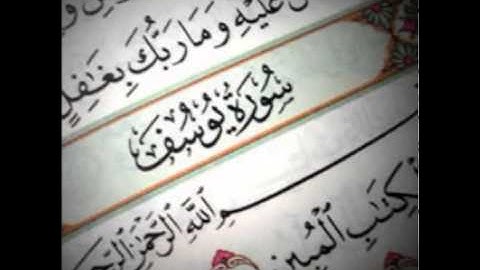 عَلَيْهِ وَمَا رَبُّكَ بِغَٰفِلٍ
سُورَةُ يُوسُفَ
بِسْمِ اللَّهِ الرَّحْمَٰنِ الرَّحِيمِ
الْكِتَابِ الْمُبِينِ